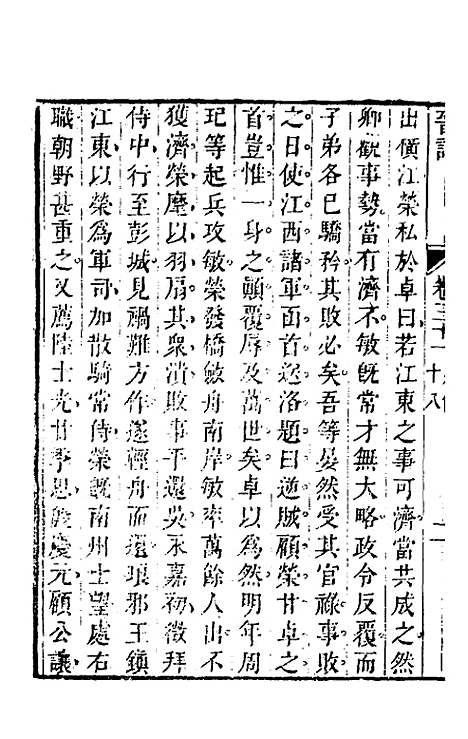 晉記 卷三十一 十八
出橫江榮私於卓曰若江東之事可濟當共成之然
卿觀事勢當有濟不敏旣常才無大略政令反覆而
子弟各已驕矜其敗必矣吾等晏然受其官祿事敗
之日使江西諸軍函首送洛題曰逆賊顧榮甘卓之
首豈惟一身之顛覆辱及萬世矣卓以為然明年周
玘等起兵攻敏榮發橋斂舟南岸敏率萬餘人出不
獲濟榮麾以羽扇其衆潰敗事平還吳永嘉初徵拜
侍中行至彭城見禍難方作遂輕舟而還琅邪王鎮
江東以榮為軍司加散騎常侍榮旣南州士望處右
職朝野甚重之又薦陸士光甘季思殷慶元顧公讓